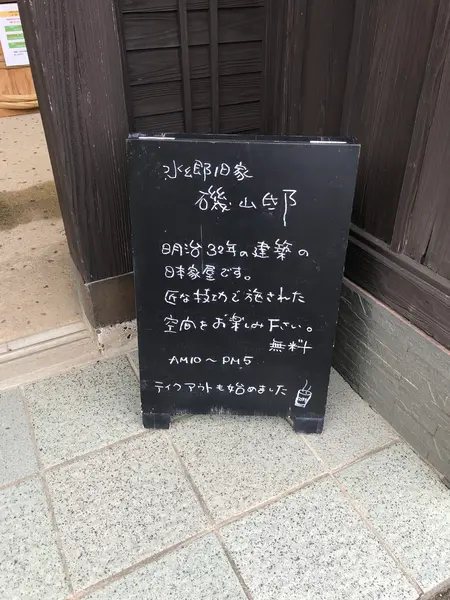 水郷旧家
磯山邸
明治32年の建築の
日本家屋です。
匠な技
空間をお楽しみ下さい。
無料
AM10〜PM5
テイクアウトも始めました